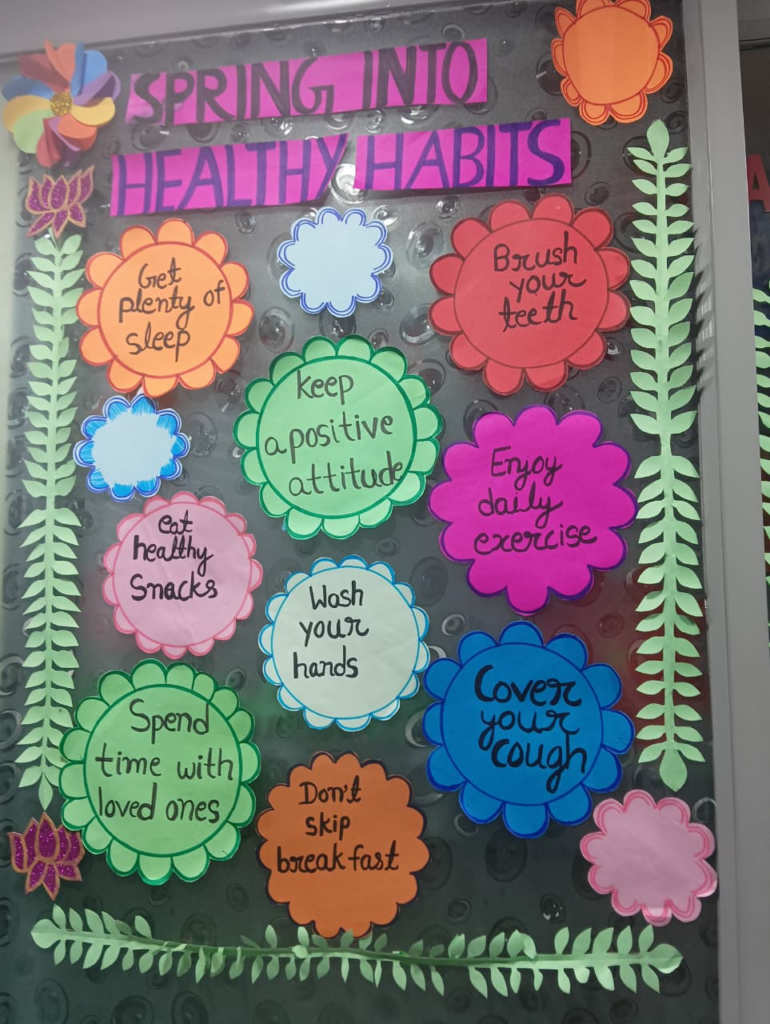 SPRING INTO
HEALTHY HABITS
Get
plenty of
sleep
Brush
your
teeth
keep
a positive
attitude
Enjoy
daily
exercise
eat
healthy
Snacks
Wash
your
hands
Cover
your
cough
Spend
time with
loved ones
Don't
skip
breakfast
A